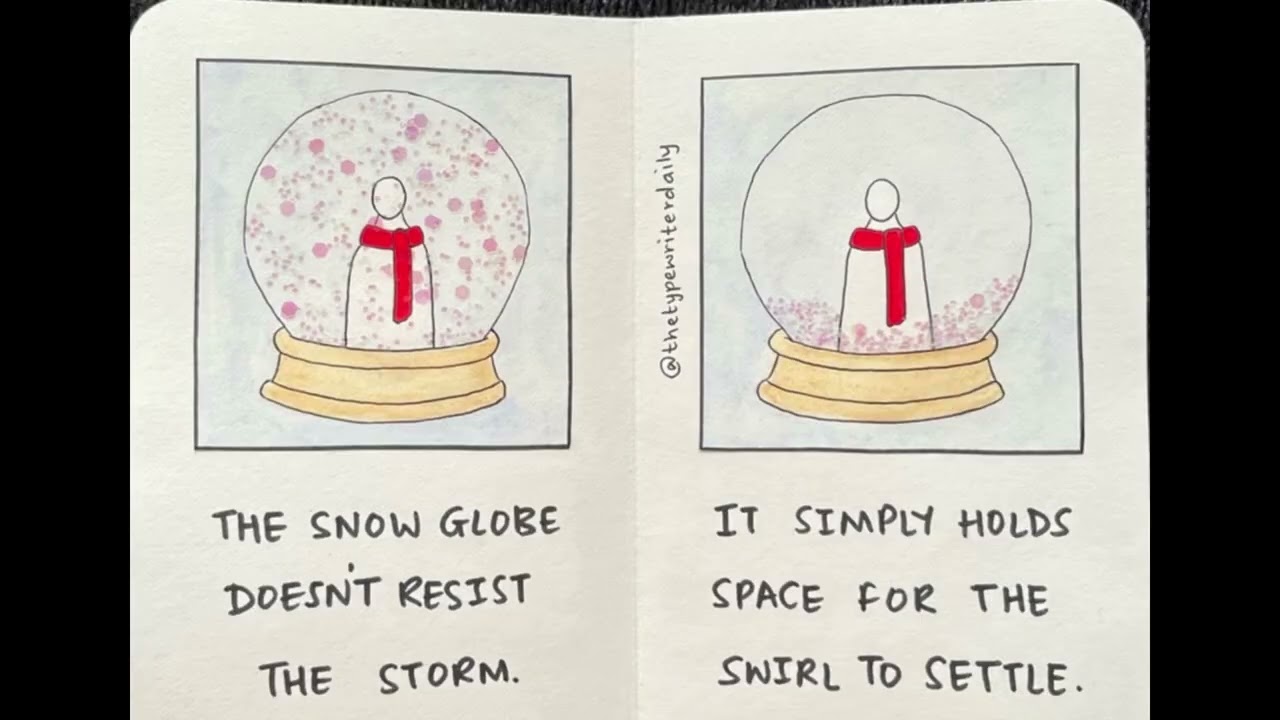 THE SNOW GLOBE
DOESN'T RESIST
THE STORM.
@thetypewriterdaily
IT SIMPLY HOLDS
SPACE FOR THE
SWIRL TO SETTLE.